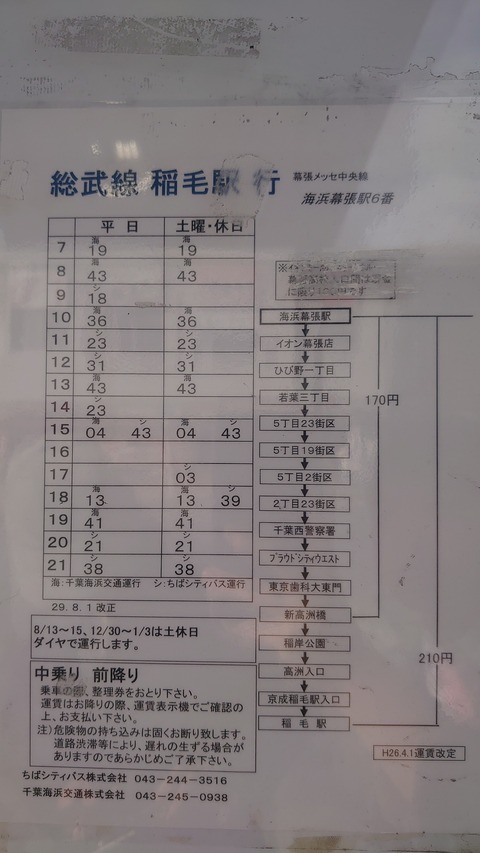 総武線 稲毛駅 行
幕張メッセ中央線
海浜幕張駅6番
平 日 土曜・休日
海 海
7 19 19
海 海
8 43 43
シ
9 18
海 海
10 36 36
シ シ
11 23 23
シ シ
12 31 31
海 海
13 43 43
シ
14 23
海 シ 海 シ
15 04 43 04 43
16
シ
17 03
海 海 シ
18 13 13 39
海 海
19 41 41
シ シ
20 21 21
シ シ
21 38 38
海:千葉海浜交通運行 シ:ちばシティバス運行
29.8.1 改正
8/13～15、12/30～1/3は土休日
ダイヤで運行します。
中乗り 前降り
乗車の際、整理券をおとり下さい。
運賃はお降りの際、運賃表示機でご確認の
上、お支払い下さい。
注)危険物の持ち込みは固くお断り致します。
道路渋滞等により、遅れの生ずる場合が
ありますのであらかじめご了承下さい。
ちばシティバス株式会社 043-244-3516
千葉海浜交通株式会社 043-245-0938
海浜幕張駅
イオン幕張店
ひび野一丁目
若葉三丁目
5丁目23街区
5丁目19街区
5丁目2街区
2丁目23街区
千葉西警察署
プラウドシティウエスト
東京歯科大東門
新高洲橋
稲岸公園
高洲入口
京成稲毛駅入口
稲 毛 駅
170円
210円
H26.4.1運賃改定